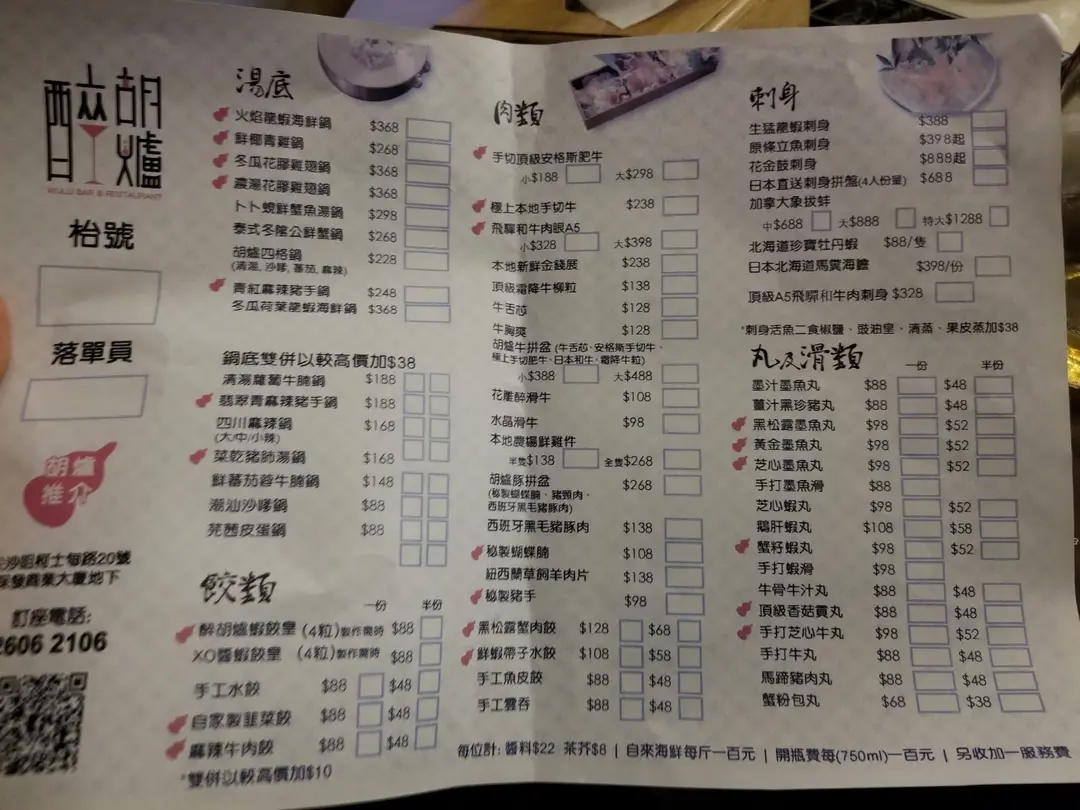 醉胡爐
WULU BAR & RESTAURANT
枱號
落單員
胡爐
推介
沙咀柯士甸路20號
發商業大廈地下
訂座電話:
2606 2106
湯底
火焰龍蝦海鮮鍋 $368
鮮椰青雞鍋 $268
冬瓜花膠雞翅鍋 $368
濃湯花膠雞翅鍋 $368
卜卜蜆鮮蟹魚湯鍋 $298
泰式冬陰公鮮蟹鍋 $268
胡爐四格鍋 $228
(清湯, 沙嗲, 蕃茄, 麻辣)
青紅麻辣豬手鍋 $248
冬瓜荷葉龍蝦海鮮鍋 $368
鍋底雙併以較高價加$38
清湯蘿蔔牛腩鍋 $188
翡翠青麻辣豬手鍋 $188
四川麻辣鍋 $168
(大/中/小辣)
菜乾豬肺湯鍋 $168
鮮蕃茄蓉牛腩鍋 $148
潮汕沙嗲鍋 $88
芫茜皮蛋鍋 $88
餃類
一份 半份
醉胡爐蝦餃皇 (4粒)製作需時 $88
XO醬蝦餃皇 (4粒)製作需時 $88
手工水餃 $88 $48
自家製韮菜餃 $88 $48
麻辣牛肉餃 $88 $48
*雙併以較高價加$10
肉類
手切頂級安格斯肥牛
小$188 大$298
極上本地手切牛 $238
飛驒和牛肉眼A5
小$328 大$398
本地新鮮金錢展 $238
頂級霜降牛柳粒 $138
牛舌芯 $128
牛胸爽 $128
胡爐牛拼盆 (牛舌芯、安格斯手切牛、
極上手切肥牛、日本和牛、霜降牛粒)
小$388 大$488
花雕醉滑牛 $108
水晶滑牛 $98
本地農場鮮雞件
半隻$138 全隻$268
胡爐豚拼盆 $268
(秘製蝴蝶腩、豬頸肉、
西班牙黑毛豬豚肉)
西班牙黑毛豬豚肉 $138
秘製蝴蝶腩 $108
紐西蘭草飼羊肉片 $138
秘製豬手 $98
一份 半份
黑松露蟹肉餃 $128 $68
鮮蝦帶子水餃 $108 $58
手工魚皮餃 $88 $48
手工雲吞 $88 $48
刺身
生猛龍蝦刺身 $388
原條立魚刺身 $398起
花金鼓刺身 $888起
日本直送刺身拼盤(4人份量) $688
加拿大象拔蚌
中$688 大$888 特大$1288
北海道珍寶牡丹蝦 $88/隻
日本北海道馬糞海膽 $398/份
頂級A5飛驒和牛肉刺身 $328
*刺身活魚二食椒鹽、豉油皇、清蒸、果皮蒸加$38
丸及滑類
一份 半份
墨汁墨魚丸 $88 $48
薑汁黑珍豬丸 $88 $48
黑松露墨魚丸 $98 $52
黃金墨魚丸 $98 $52
芝心墨魚丸 $98 $52
手打墨魚滑 $88
芝心蝦丸 $98 $52
鵝肝蝦丸 $108 $58
蟹籽蝦丸 $98 $52
手打蝦滑 $98
牛骨牛汁丸 $88 $48
頂級香菇貢丸 $88 $48
手打芝心牛丸 $98 $52
手打牛丸 $88 $48
馬蹄豬肉丸 $88 $48
蟹粉包丸 $68 $38
每位計: 醬料$22 茶芥$8 | 自來海鮮每斤一百元 | 開瓶費每(750ml)一百元 | 另收加一服務費